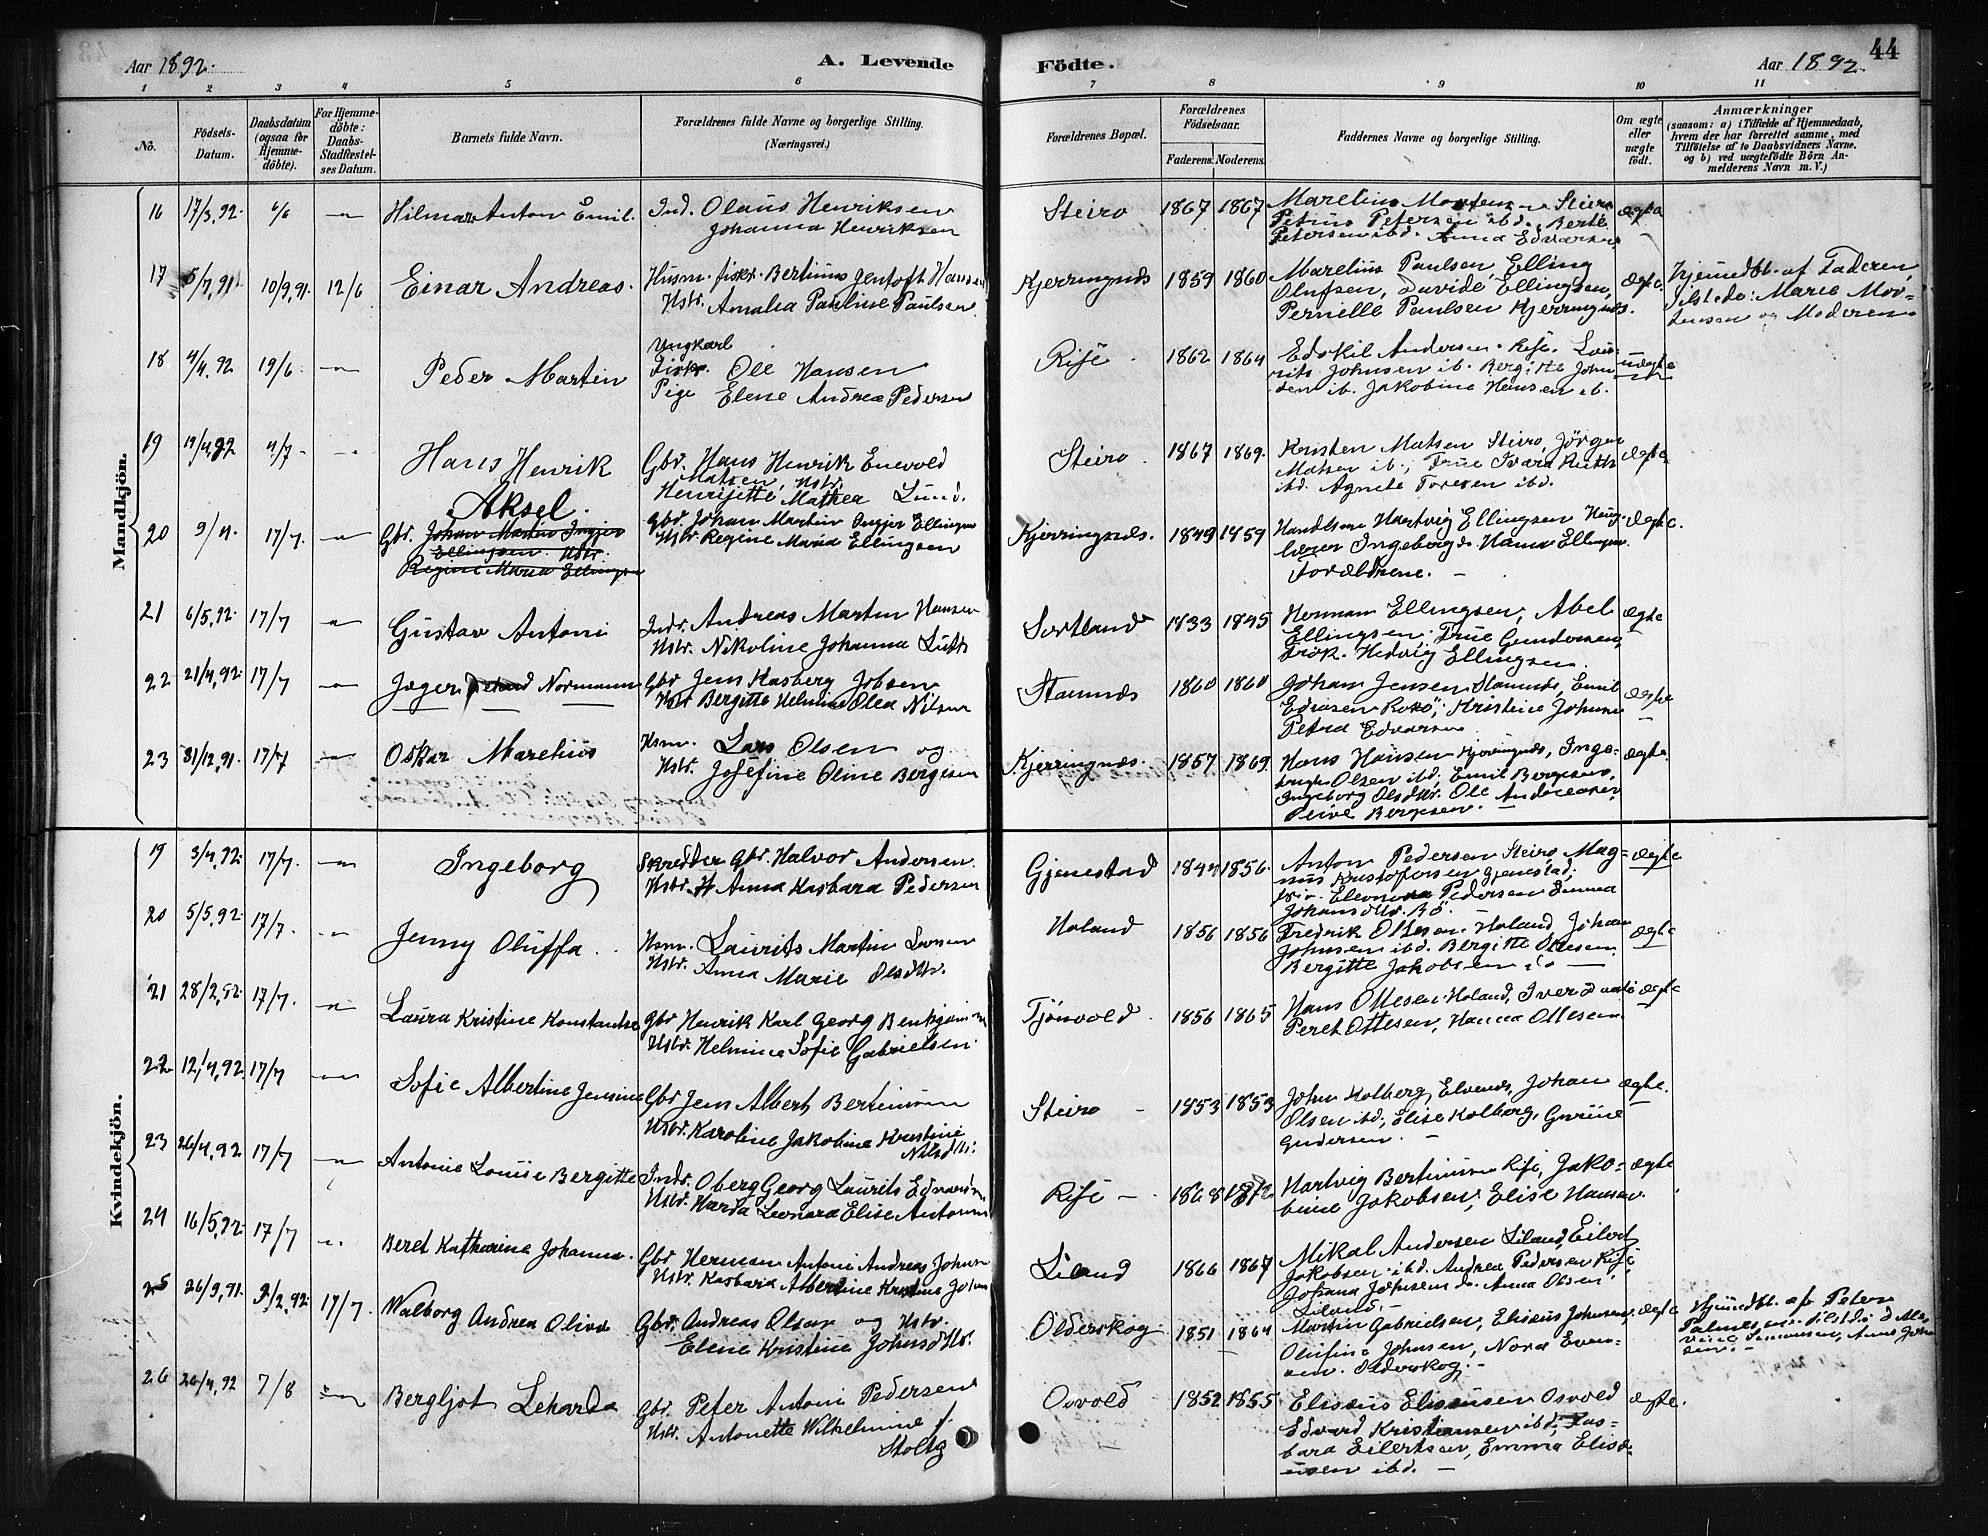 Aar 1892.
A. Levende
1 2 3 4 5 6
No.
Födsels-Datum.
Daabsdatum (ogsaa for Hjemmedöbte).
For Hjemmedöbte: Daabs-Stadfæstelses Datum.
Barnets fulde Navn.
Forældrenes fulde Navne og borgerlige Stilling.
(Næringsvei.)
Födte.
Aar 1892.
44
7 8 9 10 11
Forældrenes Bopæl.
Forældrenes Födselsaar.
Faderens. Moderens.
Faddernes Navne og borgerlige Stilling.
Om ægte eller uægte födt.
Anmærkninger
(saasom: a) i Tilfælde af Hjemmedaab, hvem der har forrettet samme, med Tilföielse af to Daabsvidners Navne, og b) ved uægtefödte Börn Anmelderens Navn m. V.)
Mandkjön.
16 17/3,92. 6/6 Hilmar Anton Emil. Ind. Olaus Henriksen
Johanna Henriksen
Steiro 1867 1867 Marelius Mortensen Steiro
Petrus Petersen ibd. Berte
Petersen ibd. Anna Edvarsen
ægte
17 5/7,91. 10/9,91. 12/6 Einar Andreas. Husm. fisker Bertinus Gentoft Hansen
Hstr. Amalia Pauline Paulsen
Kjerringnds 1859 1860 Marelius Paulsen, Elling
Olufsen, Davide Ellingsen,
Pernelle Paulsen Kjerringnds.
ægte. Hjemdbt. af Faderen
Tilstede: Marie Mortensen og Moderen.
18 4/4,92 19/6 Peder Martin
Ungkarl
Fisker Ole Hansen
Pige Elene Andrea Pedersen
Rise 1862 1864 Edskil Andersen Rise. Lauritz Johnsen ib. Bergitte Johnsen ib. Jakobine Hansen ib.
uægte
19 19/4,92 4/7 Hans Henrik
Aksel.
Gbr. Hans Henrik Enevold
Matsen, Hstr.
Henrijette Mathea Lund.
Steiro. 1867 1869. Kristen Matsen Steiro, Jörgen
Matsen ib., Frue Ivara Ruth
ibd. Agnete Toresen ibd.
ægte
20 9/4. 17/7 Gbr. Johan Martin Ingjer
Ellingsen Hstr.
Regine Maria Ellingsen
Gbr. Johan Martin Ingjer Ellingsen
Hstr Regine Maria Ellingsen
Kjerringnds. 1849 1859 Handlsm Hartvig Ellingsen
Ingeborg Hanna Ellingsen.
Forældrene.
ægte.
21 6/5,92. 17/7 Gustav Antoni Indr. Andreas Martin Hansen
Hstr. Nikoline Johanna Luth
Sortland 1833 1845 Herman Ellingsen, Abel
Ellingsen, Frue Gundersen,
Frök. Hedvig Ellingsen.
ægte
22 21/4,92. 17/7 Jæger Normann Gbr Jens Kasberg Jobsen
Hstr Bergitte Helmine Olea Nilsen
Stamnæs 1860 1860 Johan Jensen Stamnds, Emil
Edvasen Rokö, Kristine Johnsen
Petrea Edvarsen
ægte
23 31/12,91. 17/7 Oskar Marelius Hsm. Lars Olsen og
Hstr. Josefine Oline Bergesen
Kjerringnds. 1857 1869 Hans Hansen Kjerringnds, Ingeborg Olsen ibd, Emil Bergesen,
Ingeborg Olsdttr. Ole Andreasen,
Olive Bergesen.
ægte.
Kvindekjön.
19 3/4,92. 17/7. Ingeborg Skredder Gbr. Halvor Andersen
Hstr. Anna Kasbara Pedersen
Gjenestad 1844 1856. Anton Pedersen Steiro Magnus Kristofersen Gjenestad,
Eleonora Pedersen Emma
Johansdttr. Bö.
ægte
20 5/5,92. 17/7. Jenny Oluffa. Hsm. Laurits Martin Larsen
Hstr. Anna Marie Olsdttr.
Holand 1856 1856 Fredrik Ottesen Holand, Johan
Johnsen ibd. Bergitte Ottesen
Bergitte Jakobsen
ægte
21 28/2,92. 17/7. Laura Kristine Konstanse Gbr Henrik Karl Georg Benkjamin
Hstr. Helmine Sofie Gabrielsen.
Tjönvold 1856 1865 Hans Ottesen Holand, Iver
Peret Ottesen, Hanna Ottesen
ægte
22 12/4,92. 17/7 Sofie Albertine Jensine Gbr Jens Albert Bertinussen
Hstr. Karoline Jakobine Kristine
Nilsdttr.
Steiro 1853 1853 John Kolberg, Elvends, Johan
Olsen ibd, Elise Kolberg, Gurine
Gudersen.
ægte.
23 26/4,92 17/7 Antonie Louise Bergitte Indr. Oberg Georg Laurits Edvardsen
Hstr. Harda Leonora Elise Antonsen
Rise 1868 1872 Hartvig Bertinussen Rise, Jakobine Jakobsen, Elise Hansen.
ægte
24 16/5,92. 17/7 Beret Katharina Johanna. Gbr Herman Antoni Andreas Johnsen
Hstr. Kasbara Albertine Kristine Johnsen
Liland 1866 1867 Mikal Andersen Liland, Eilert
Jakobsen ibd. Andrea Pedersen Rise,
Johana Johnsen Anna Olsen
Liland.
25 26/9,91. 9/2,92. 17/7. Walborg Andrea Oliva Gbr. Andreas Olsen og Hstr.
Elene Kristine Johnsdttr.
Olderskog 1851 1864 Martin Gabrielsen, Elisæus Johansen,
Olufine Johnsen, Nora Evensen. Olderskog.
ægte Hjemdbt. af Peter
Simonsen, Anne Johnsen.
26 26/4,92 7/8 Bergljot Leharda Gbr. Peter Antoni Pedersen
Hstr. Antonette Wilhelmine f.
Stoltz
Osvold 1852 1855 Elisæus Elisæusen Osvold
Edvard Kristiansen ibd, Kasbara Eilertsen, Emma Elisæusen ibd.
ægte.